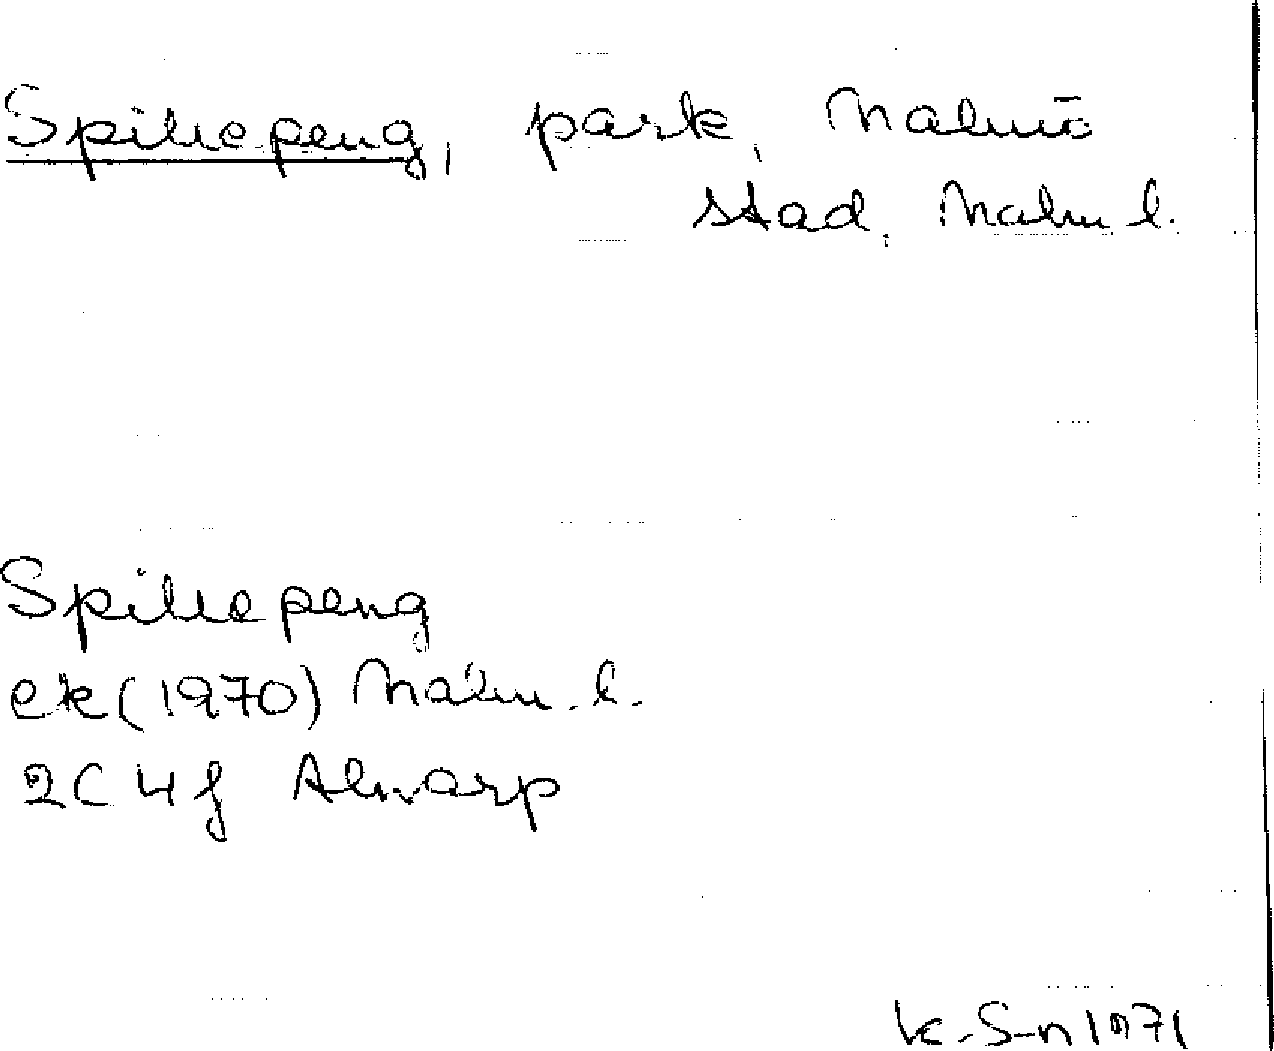 Spillepeng, park, Malmö
stad, Malm. l.
Spillepeng
ek (1970) Malm. l.
2C 4f Alnarp
K. S-n 1971